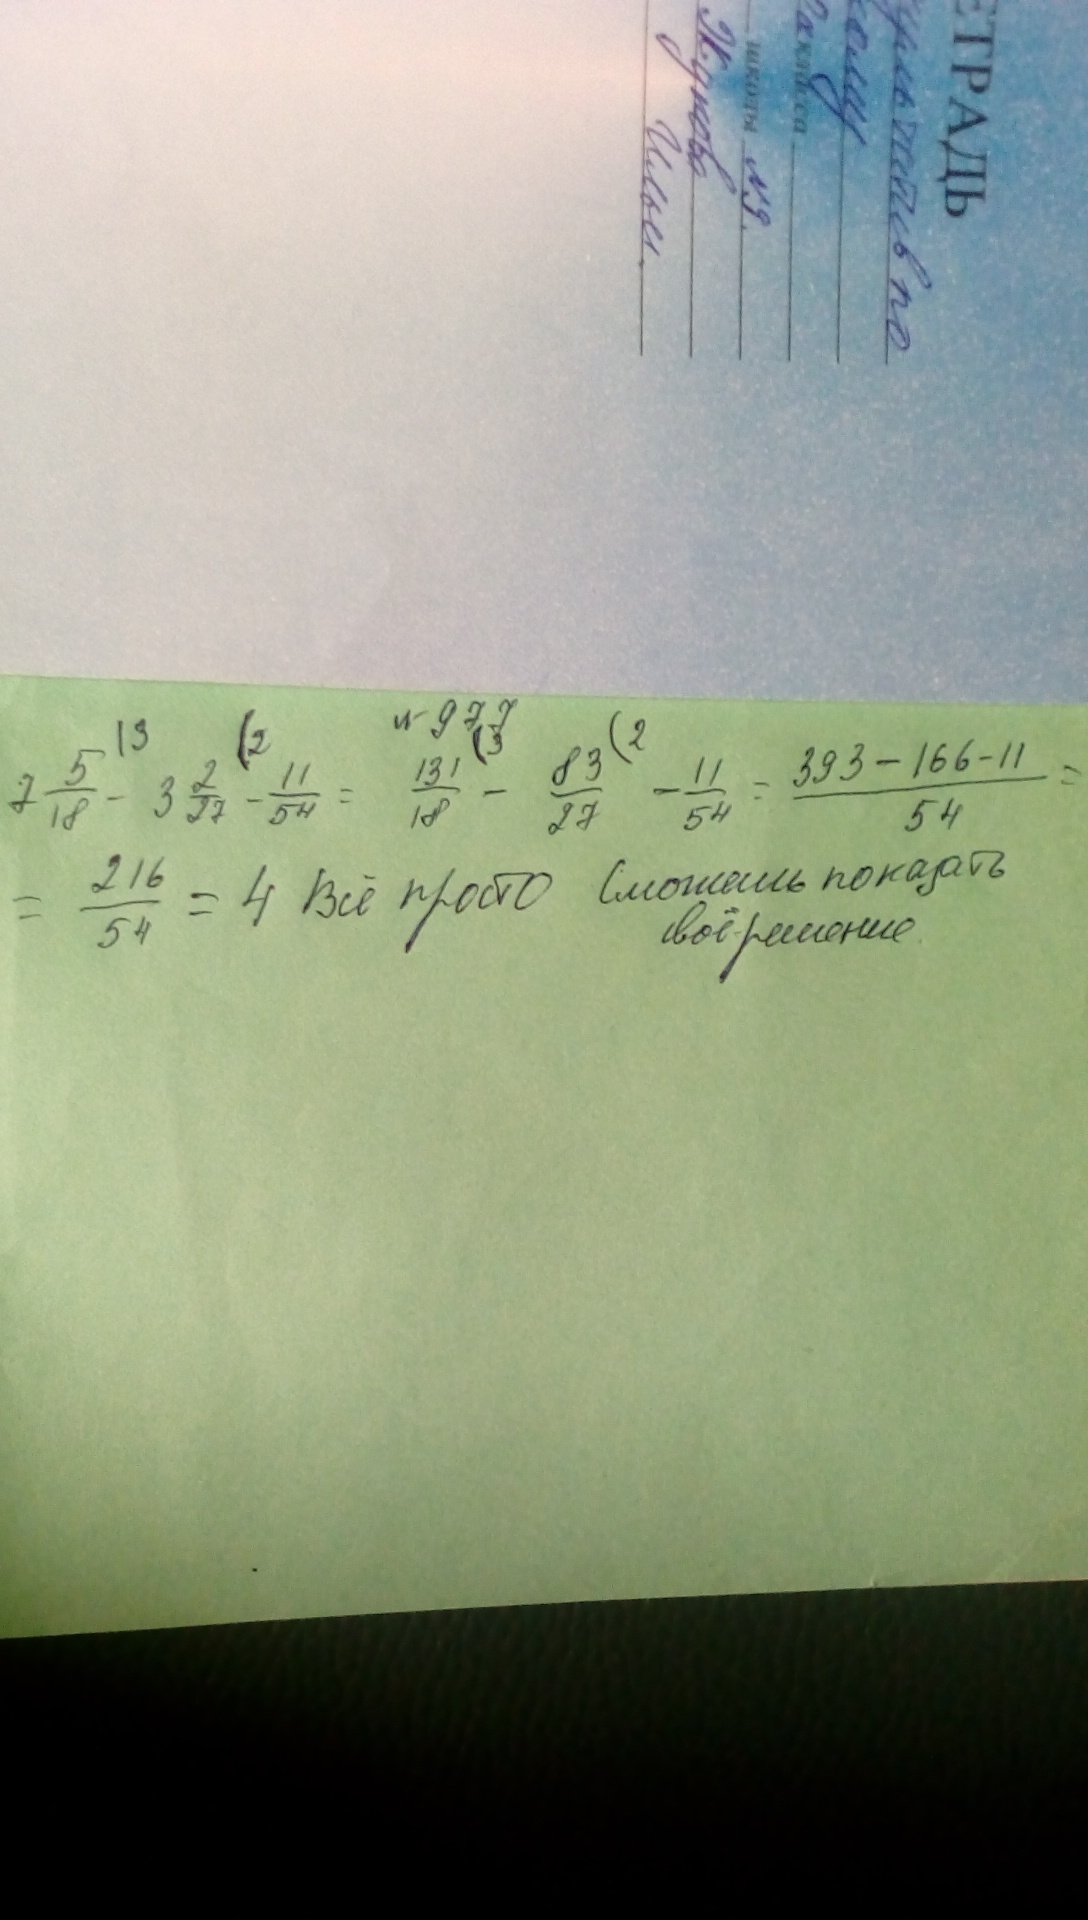 ЕТРАДЬ
по
класса
школы №9.
Ильи.
№ 977
7 5/18 (3 - 3 2/27 (2 - 11/54 = 131/18 (3 - 83/27 (2 - 11/54 = 393-166-11/54 =
= 216/54 = 4 Всё просто Сможешь показать
своё решение.